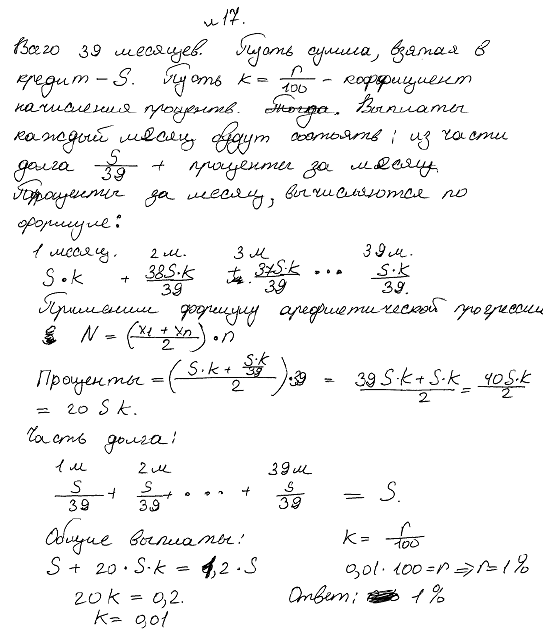 №17.
Всего 39 месяцев. Пусть сумма, взятая в
кредит – S. Пусть k = r/100 – коэффициент
начисления процентв. Тогда. Выплаты
каждый месяц будут состоять: из части
долга S/39 + проценты за месяц
Проценты за месяц, вычисляются по
формуле:
1 месяц. 2 м. 3 м 39 м.
S·k + 38S·k/39 + 37S·k/39 ... S·k/39.
Применим формулу арефметической прогрессии
N = ((x1 + xn)/2)·n
Проценты = ((S·k + S·k/39)/2)·39 = (39S·k + S·k)/2 = 40S·k/2
= 20 S k.
Часть долга:
1 м 2 м 39 м
S/39 + S/39 + .... + S/39 = S.
Общие выплаты: k = r/100
S + 20·S·k = 1,2·S 0,01·100 = r ⇒ r = 1%
20k = 0,2. Ответ: 1%
k = 0,01